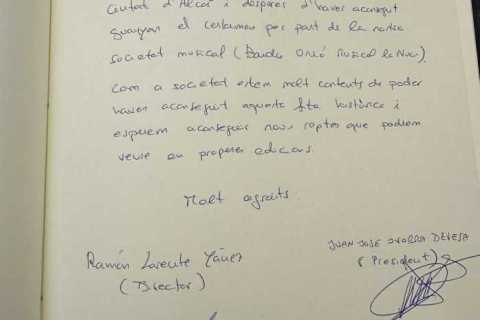 Ciutat d'Alcoi i després d'haver aconseguit
guanyar el certamen per part de la nostra
societat musical (Banda Unió Musical la Nucia).
Com a societat estem molt contents de poder
haver aconseguit aquesta fita històrica i
esperem aconseguir nous reptes que podrem
veure en properes edicions.
Molt agraïts.
Ramón Lorente Yáñez
(Director)
JUAN JOSÉ IVORRA DEVESA
(President)